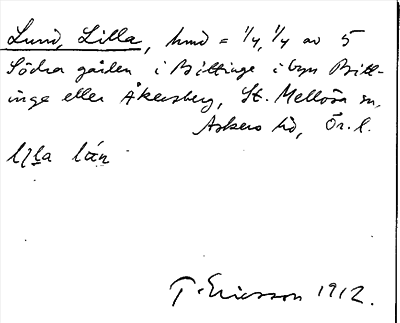 Lund, Lilla, hmd = 1/4, 1/4 av 5
Södra gården i Bittinge i byn Bitt-
inge eller Åkersberg, St. Mellösa sn,
Askers hd, Ör. l.
lɩla
T. Ericsson 1912.